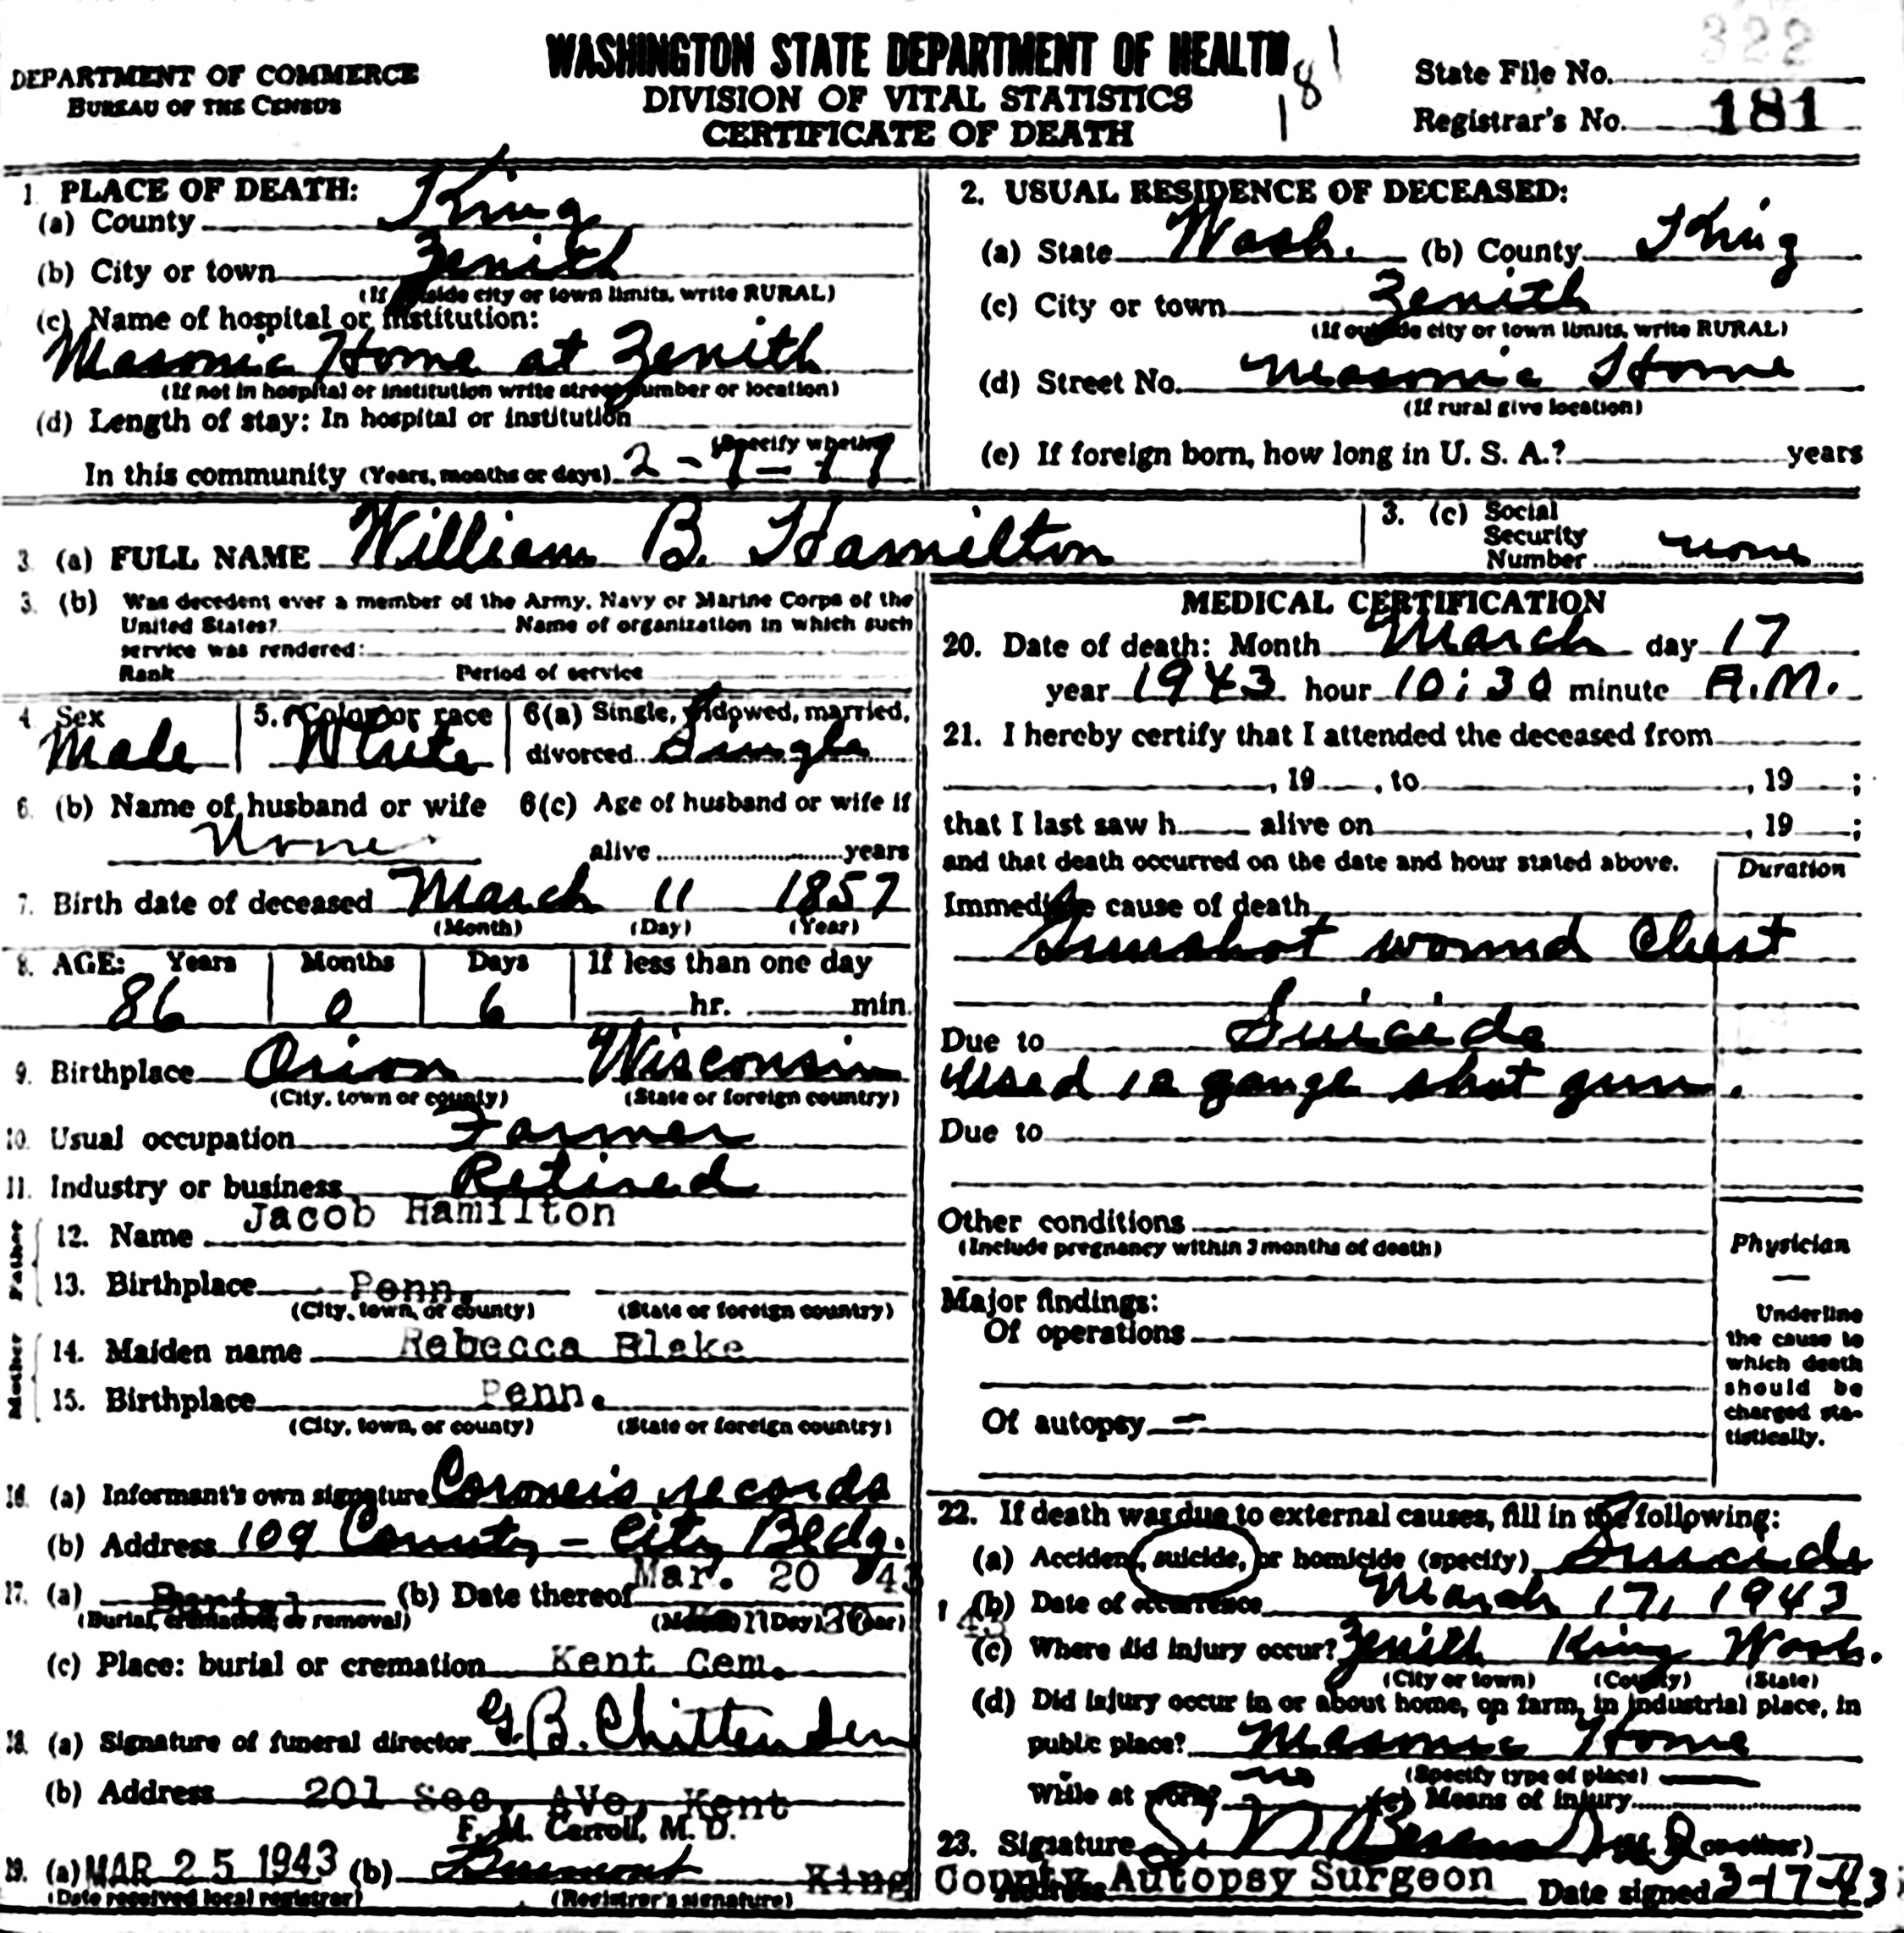 322
WASHINGTON STATE DEPARTMENT OF HEALTH
DEPARTMENT OF COMMERCE
BUREAU OF THE CENSUS
DIVISION OF VITAL STATISTICS
CERTIFICATE OF DEATH
181
State File No.
Registrar's No. 181
1. PLACE OF DEATH:
(a) County King
(b) City or town Zenith
(If outside city or town limits, write RURAL)
(c) Name of hospital or institution:
Masonic Home at Zenith
(If not in hospital or institution write street number or location)
(d) Length of stay: In hospital or institution
(Specify whether
In this community (Years, months or days) 2-
2. USUAL RESIDENCE OF DECEASED:
(a) State Wash. (b) County King
(c) City or town Zenith
(If outside city or town limits, write RURAL)
(d) Street No. Masonic Home
(If rural give location)
(e) If foreign born, how long in U. S. A.? years
3. (a) FULL NAME William B. Hamilton
3. (c) Social
Security
Number none
3. (b) Was decedent ever a member of the Army, Navy or Marine Corps of the
United States? Name of organization in which such
service was rendered:
Rank Period of service
4. Sex Male
5. Color or race White
6(a) Single, widowed, married,
divorced Single
6. (b) Name of husband or wife 6(c) Age of husband or wife if
None alive years
7. Birth date of deceased March 11 1857
(Month) (Day) (Year)
8. AGE: Years Months Days If less than one day
86 0 6 hr. min.
9. Birthplace Orion Wisconsin
(City, town or county) (State or foreign country)
10. Usual occupation Farmer
11. Industry or business Retired
Father
12. Name Jacob Hamilton
13. Birthplace Penn.
(City, town, or county) (State or foreign country)
Mother
14. Maiden name Rebecca Blake
15. Birthplace Penn.
(City, town, or county) (State or foreign country)
16. (a) Informant's own signature Coroner's records
(b) Address 109 County - City Bldg.
17. (a) (b) Date thereof Mar. 20 '43
(Burial, cremation, or removal) (Month) (Day) (Year)
(c) Place: burial or cremation Kent Cem.
18. (a) Signature of funeral director G.B. Chittenden
(b) Address 201 Sec. Ave, Kent
F. M. Carroll, M. D.
19. (a) MAR 25 1943 (b)
(Date received local registrar) (Registrar's signature)
MEDICAL CERTIFICATION
20. Date of death: Month March day 17
year 1943 hour 10:30 minute A.M.
21. I hereby certify that I attended the deceased from
, 19 , to , 19 ;
that I last saw h alive on , 19 ;
and that death occurred on the date and hour stated above.
Duration
Immediate cause of death
Gunshot wound Chest
Due to Suicide
Used 12 gauge shot gun.
Due to
Other conditions
(Include pregnancy within 3 months of death)
Major findings:
Of operations
Of autopsy —
Physician
—
Underline
the cause to
which death
should be
charged sta-
tistically.
22. If death was due to external causes, fill in the following:
(a) Accident, suicide, or homicide (specify) Suicide
(b) Date of occurrence March 17, 1943
(c) Where did injury occur? Zenith King Wash.
(City or town) (County) (State)
(d) Did injury occur in or about home, on farm, in industrial place, in
public place? Masonic Home
(Specify type of place)
While at work? no (e) Means of injury
23. Signature (M. D. or other)
King County Autopsy Surgeon
Address Date signed 3-17-43